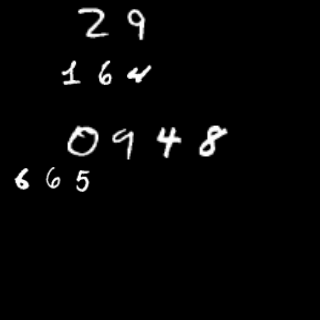 29
164
0948
665